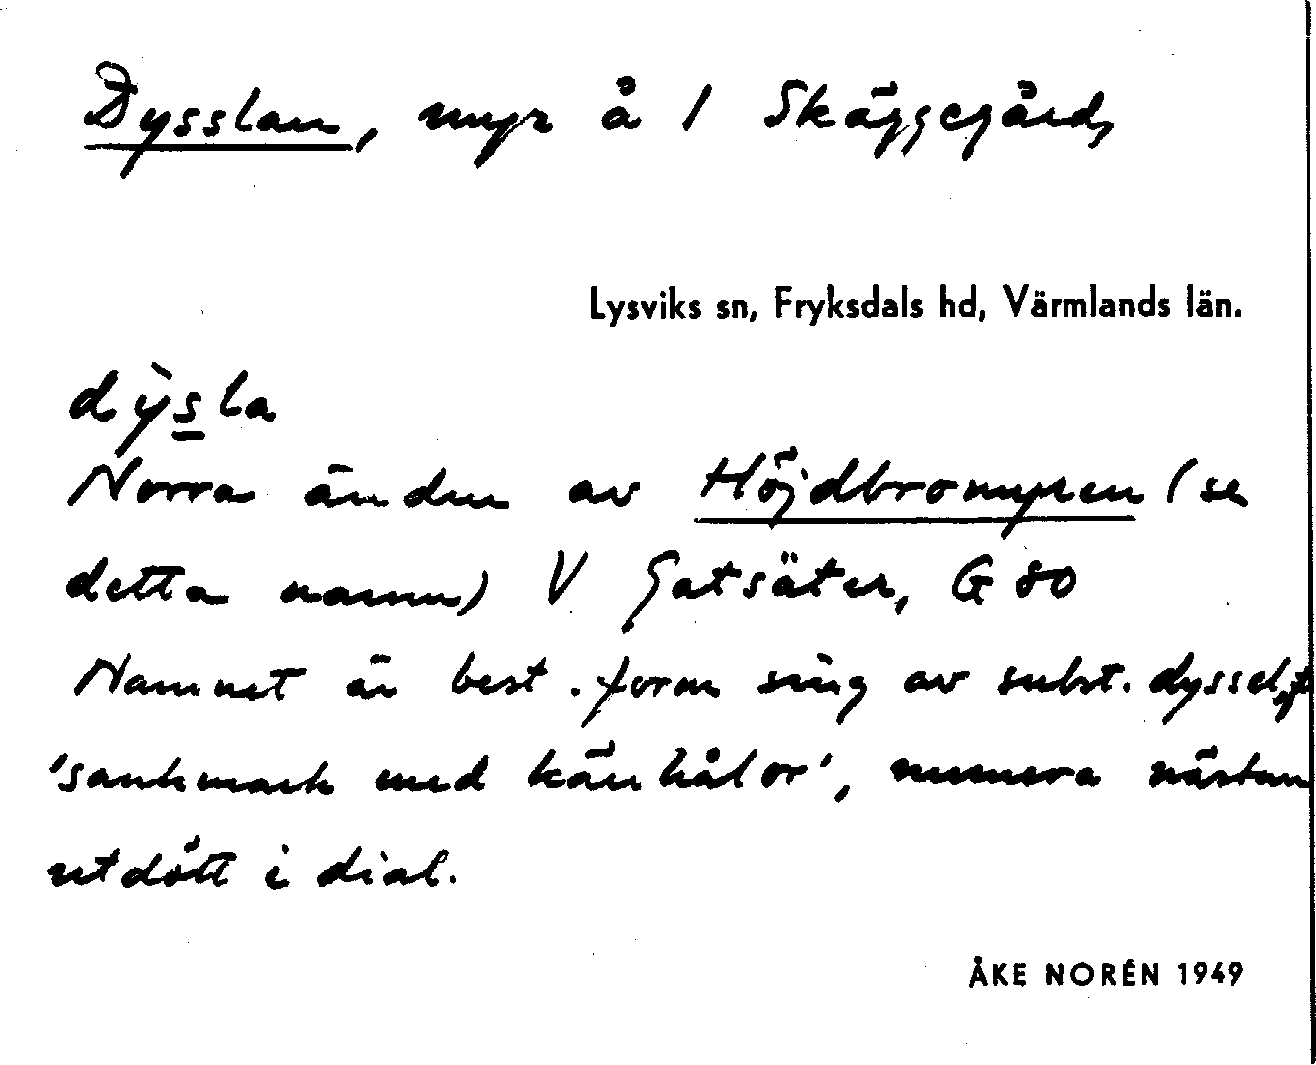 Dysslan, myr å 1 Skäggegärd,
Lysviks sn, Fryksdals hd, Värmlands län.
dỳsla
Norra änden av Höjdbromyren (se
detta namn) V Gatsäter, G 80
Namnet är best. form sing av subst. dyssel, f
'sankmark med kärrhålor', numera nästan
utdött i dial.
ÅKE NORÉN 1949